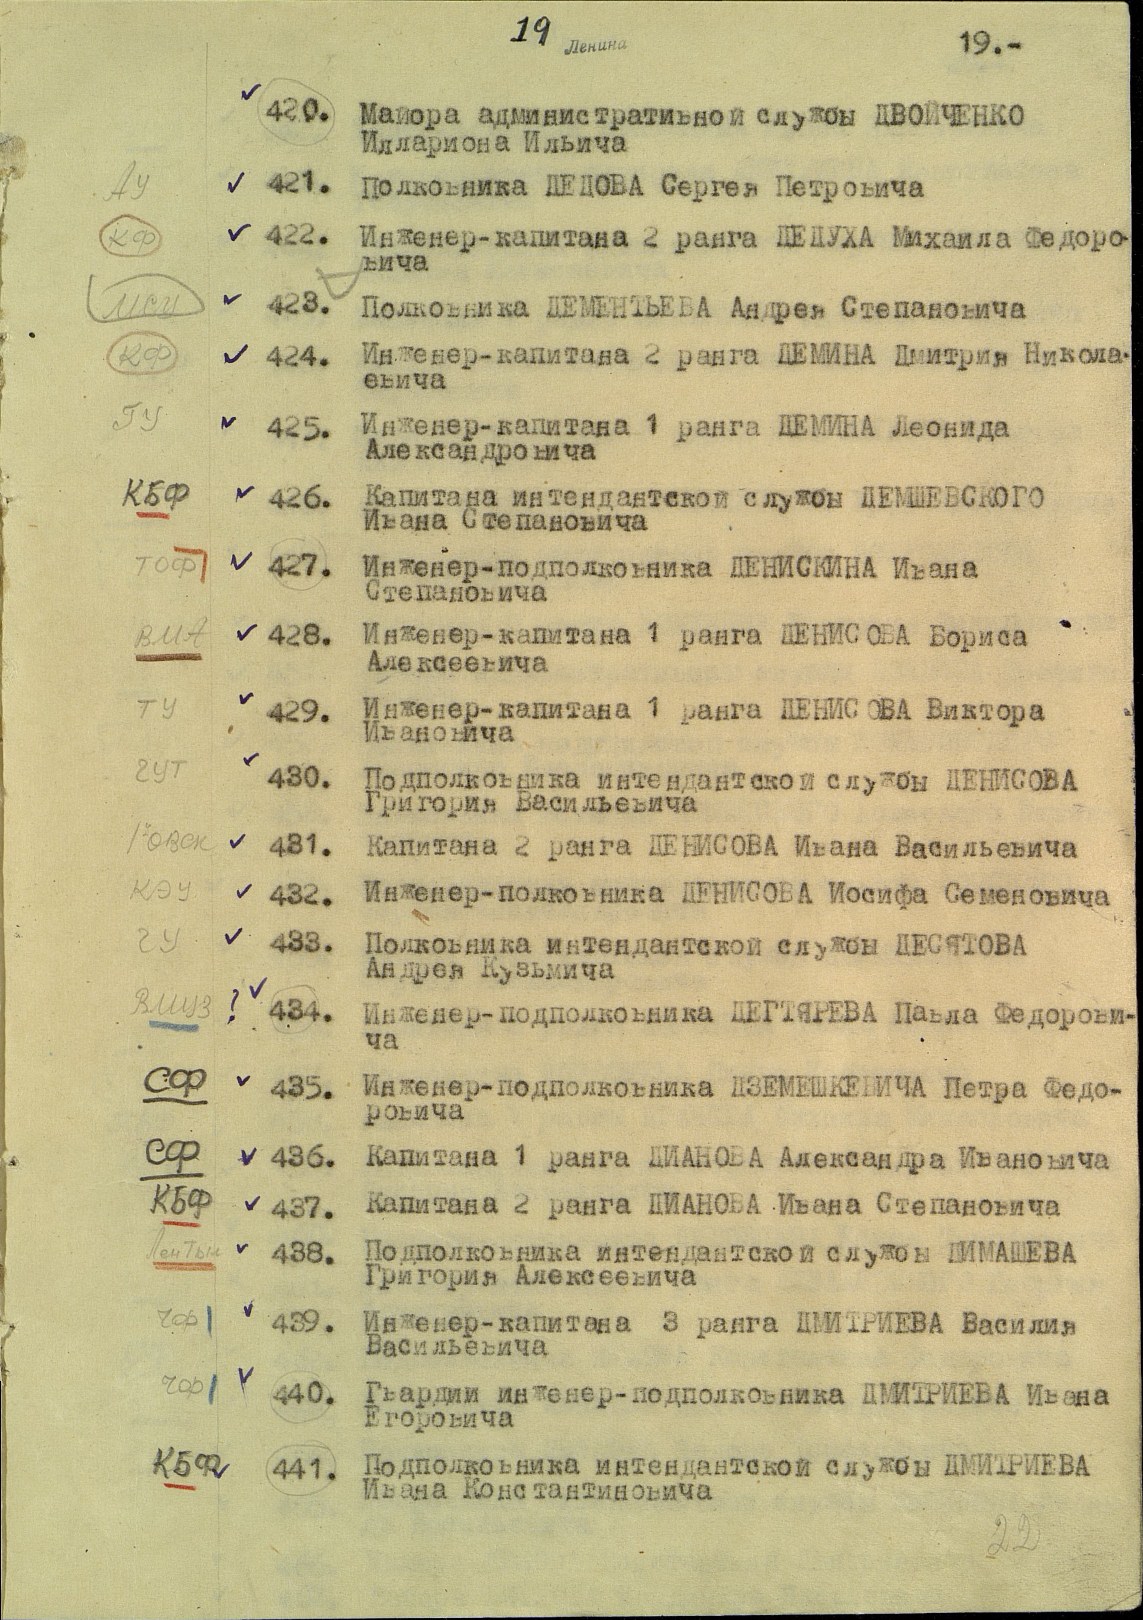 19 Ленина 19.-
420. Майора административной службы ДВОЙЧЕНКО
Иллариона Ильича
АУ 421. Полковника ДЕДОВА Сергея Петровича
КФ 422. Инженер-капитана 2 ранга ДЕДУХА Михаила Федоро-
вича
423. Полковника ДЕМЕНТЬЕВА Андрея Степановича
КФ 424. Инженер-капитана 2 ранга ДЕМИНА Дмитрия Никола-
евича
ТУ 425. Инженер-капитана 1 ранга ДЕМИНА Леонида
Александровича
КБФ 426. Капитана интендантской службы ДЕМШЕВСКОГО
Ивана Степановича
ТОФ 427. Инженер-подполковника ДЕНИСКИНА Ивана
Степановича
ВМА 428. Инженер-капитана 1 ранга ДЕНИСОВА Бориса
Алексеевича
ТУ 429. Инженер-капитана 1 ранга ДЕНИСОВА Виктора
Ивановича
430. Подполковника интендантской службы ДЕНИСОВА
Григория Васильевича
431. Капитана 2 ранга ДЕНИСОВА Ивана Васильевича
КЭУ 432. Инженер-полковника ДЕНИСОВА Иосифа Семеновича
433. Полковника интендантской службы ДЕСЯТОВА
Андрея Кузьмича
ВМУЗ ? 434. Инженер-подполковника ДЕГТЯРЕВА Павла Федорови-
ча
СФ 435. Инженер-подполковника ДЗЕМЕШКЕВИЧА Петра Федо-
ровича
СФ 436. Капитана 1 ранга ДИАНОВА Александра Ивановича
КБФ 437. Капитана 2 ранга ДИАНОВА Ивана Степановича
438. Подполковника интендантской службы ДИМАШЕВА
Григория Алексеевича
ЧФ 439. Инженер-капитана 3 ранга ДМИТРИЕВА Василия
Васильевича
ЧФ 440. Гвардии инженер-подполковника ДМИТРИЕВА Ивана
Егоровича
КБФ 441. Подполковника интендантской службы ДМИТРИЕВА
Ивана Константиновича
22